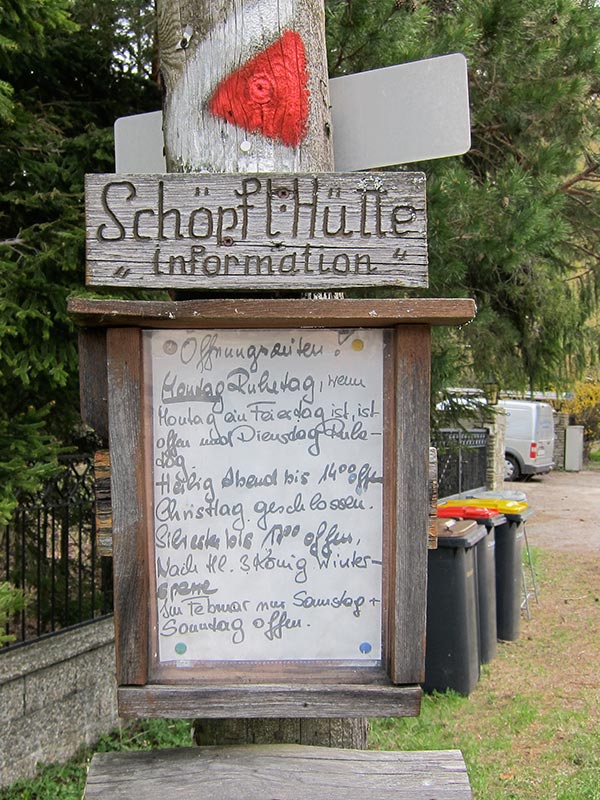 Schöpfl-Hütte
"information"
Öffnungszeiten:
Montag Ruhetag, wenn
Montag ein Feiertag ist, ist
offen und Dienstag Ruhe-
tag.
Heilig Abend bis 14 00 offen
Christtag geschlossen.
Silvester bis 17 00 offen,
Nach Hl. 3 König Winter-
sperre
Im Februar nur Samstag +
Sonntag offen.